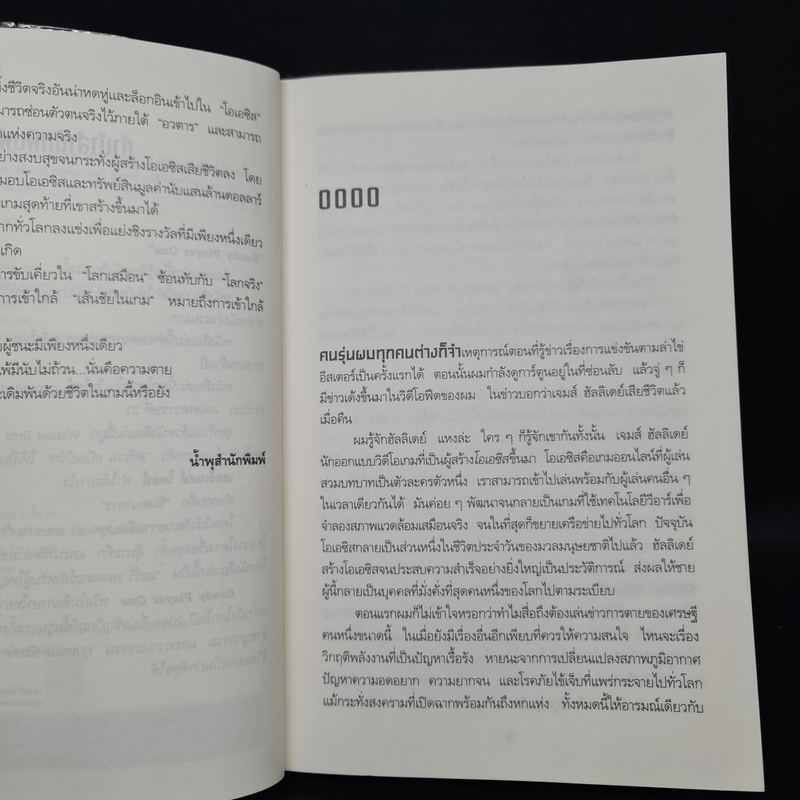 ี้งชีวิตจริงอันน่าหดหู่และล็อกอินเข้าไปใน “โอเอซิส”
มารถซ่อนตัวตนจริงไว้ภายใต้ “อวตาร” และสามารถ
าแห่งความจริง
ย่างสงบสุขจนกระทั่งผู้สร้างโอเอซิสเสียชีวิตลง โดย
มอบโอเอซิสและทรัพย์สินมูลค่านับแสนล้านดอลลาร์
เกมสุดท้ายที่เขาสร้างขึ้นมาได้
ากทั่วโลกลงแข่งเพื่อแย่งชิงรางวัลที่มีเพียงหนึ่งเดียว
เกิด
การขับเคี่ยวใน “โลกเสมือน” ซ้อนทับกับ “โลกจริง”
การเข้าใกล้ “เส้นชัยในเกม” หมายถึงการเข้าใกล้
ผู้ชนะมีเพียงหนึ่งเดียว
แพ้มีนับไม่ถ้วน...นั่นคือความตาย
ะเดิมพันด้วยชีวิตในเกมนี้หรือยัง
น้ำพุสำนักพิมพ์
0000
คนรุ่นผมทุกคนต่างก็จำเหตุการณ์ตอนที่รู้ข่าวเรื่องการแข่งขันตามล่าไข่
อีสเตอร์เป็นครั้งแรกได้ ตอนนั้นผมกำลังดูการ์ตูนอยู่ในที่ซ่อนลับ แล้วจู่ ๆ ก็
มีข่าวเด้งขึ้นมาในวิดีโอฟีดของผม ในข่าวบอกว่าเจมส์ ฮัลลิเดย์เสียชีวิตแล้ว
เมื่อคืน
ผมรู้จักฮัลลิเดย์ แหงล่ะ ใคร ๆ ก็รู้จักเขากันทั้งนั้น เจมส์ ฮัลลิเดย์
นักออกแบบวิดีโอเกมที่เป็นผู้สร้างโอเอซิสขึ้นมา โอเอซิสคือเกมออนไลน์ที่ผู้เล่น
สวมบทบาทเป็นตัวละครตัวหนึ่ง เราสามารถเข้าไปเล่นพร้อมกับผู้เล่นคนอื่น ๆ
ในเวลาเดียวกันได้ มันค่อย ๆ พัฒนาจนกลายเป็นเกมที่ใช้เทคโนโลยีวีอาร์เพื่อ
จำลองสภาพแวดล้อมเสมือนจริง จนในที่สุดก็ขยายเครือข่ายไปทั่วโลก ปัจจุบัน
โอเอซิสกลายเป็นส่วนหนึ่งในชีวิตประจำวันของมวลมนุษยชาติไปแล้ว ฮัลลิเดย์
สร้างโอเอซิสจนประสบความสำเร็จอย่างยิ่งใหญ่เป็นประวัติการณ์ ส่งผลให้ชาย
ผู้นี้กลายเป็นบุคคลที่มั่งคั่งที่สุดคนหนึ่งของโลกไปตามระเบียบ
ตอนแรกผมก็ไม่เข้าใจหรอกว่าทำไมสื่อถึงต้องเล่นข่าวการตายของเศรษฐี
คนหนึ่งขนาดนี้ ในเมื่อยังมีเรื่องอื่นอีกเพียบที่ควรให้ความสนใจ ไหนจะเรื่อง
วิกฤติพลังงานที่เป็นปัญหาเรื้อรัง หายนะจากการเปลี่ยนแปลงสภาพภูมิอากาศ
ปัญหาความอดอยาก ความยากจน และโรคภัยไข้เจ็บที่แพร่กระจายไปทั่วโลก
แม้กระทั่งสงครามที่เปิดฉากพร้อมกันถึงหกแห่ง ทั้งหมดนี้ให้อารมณ์เดียวกับ